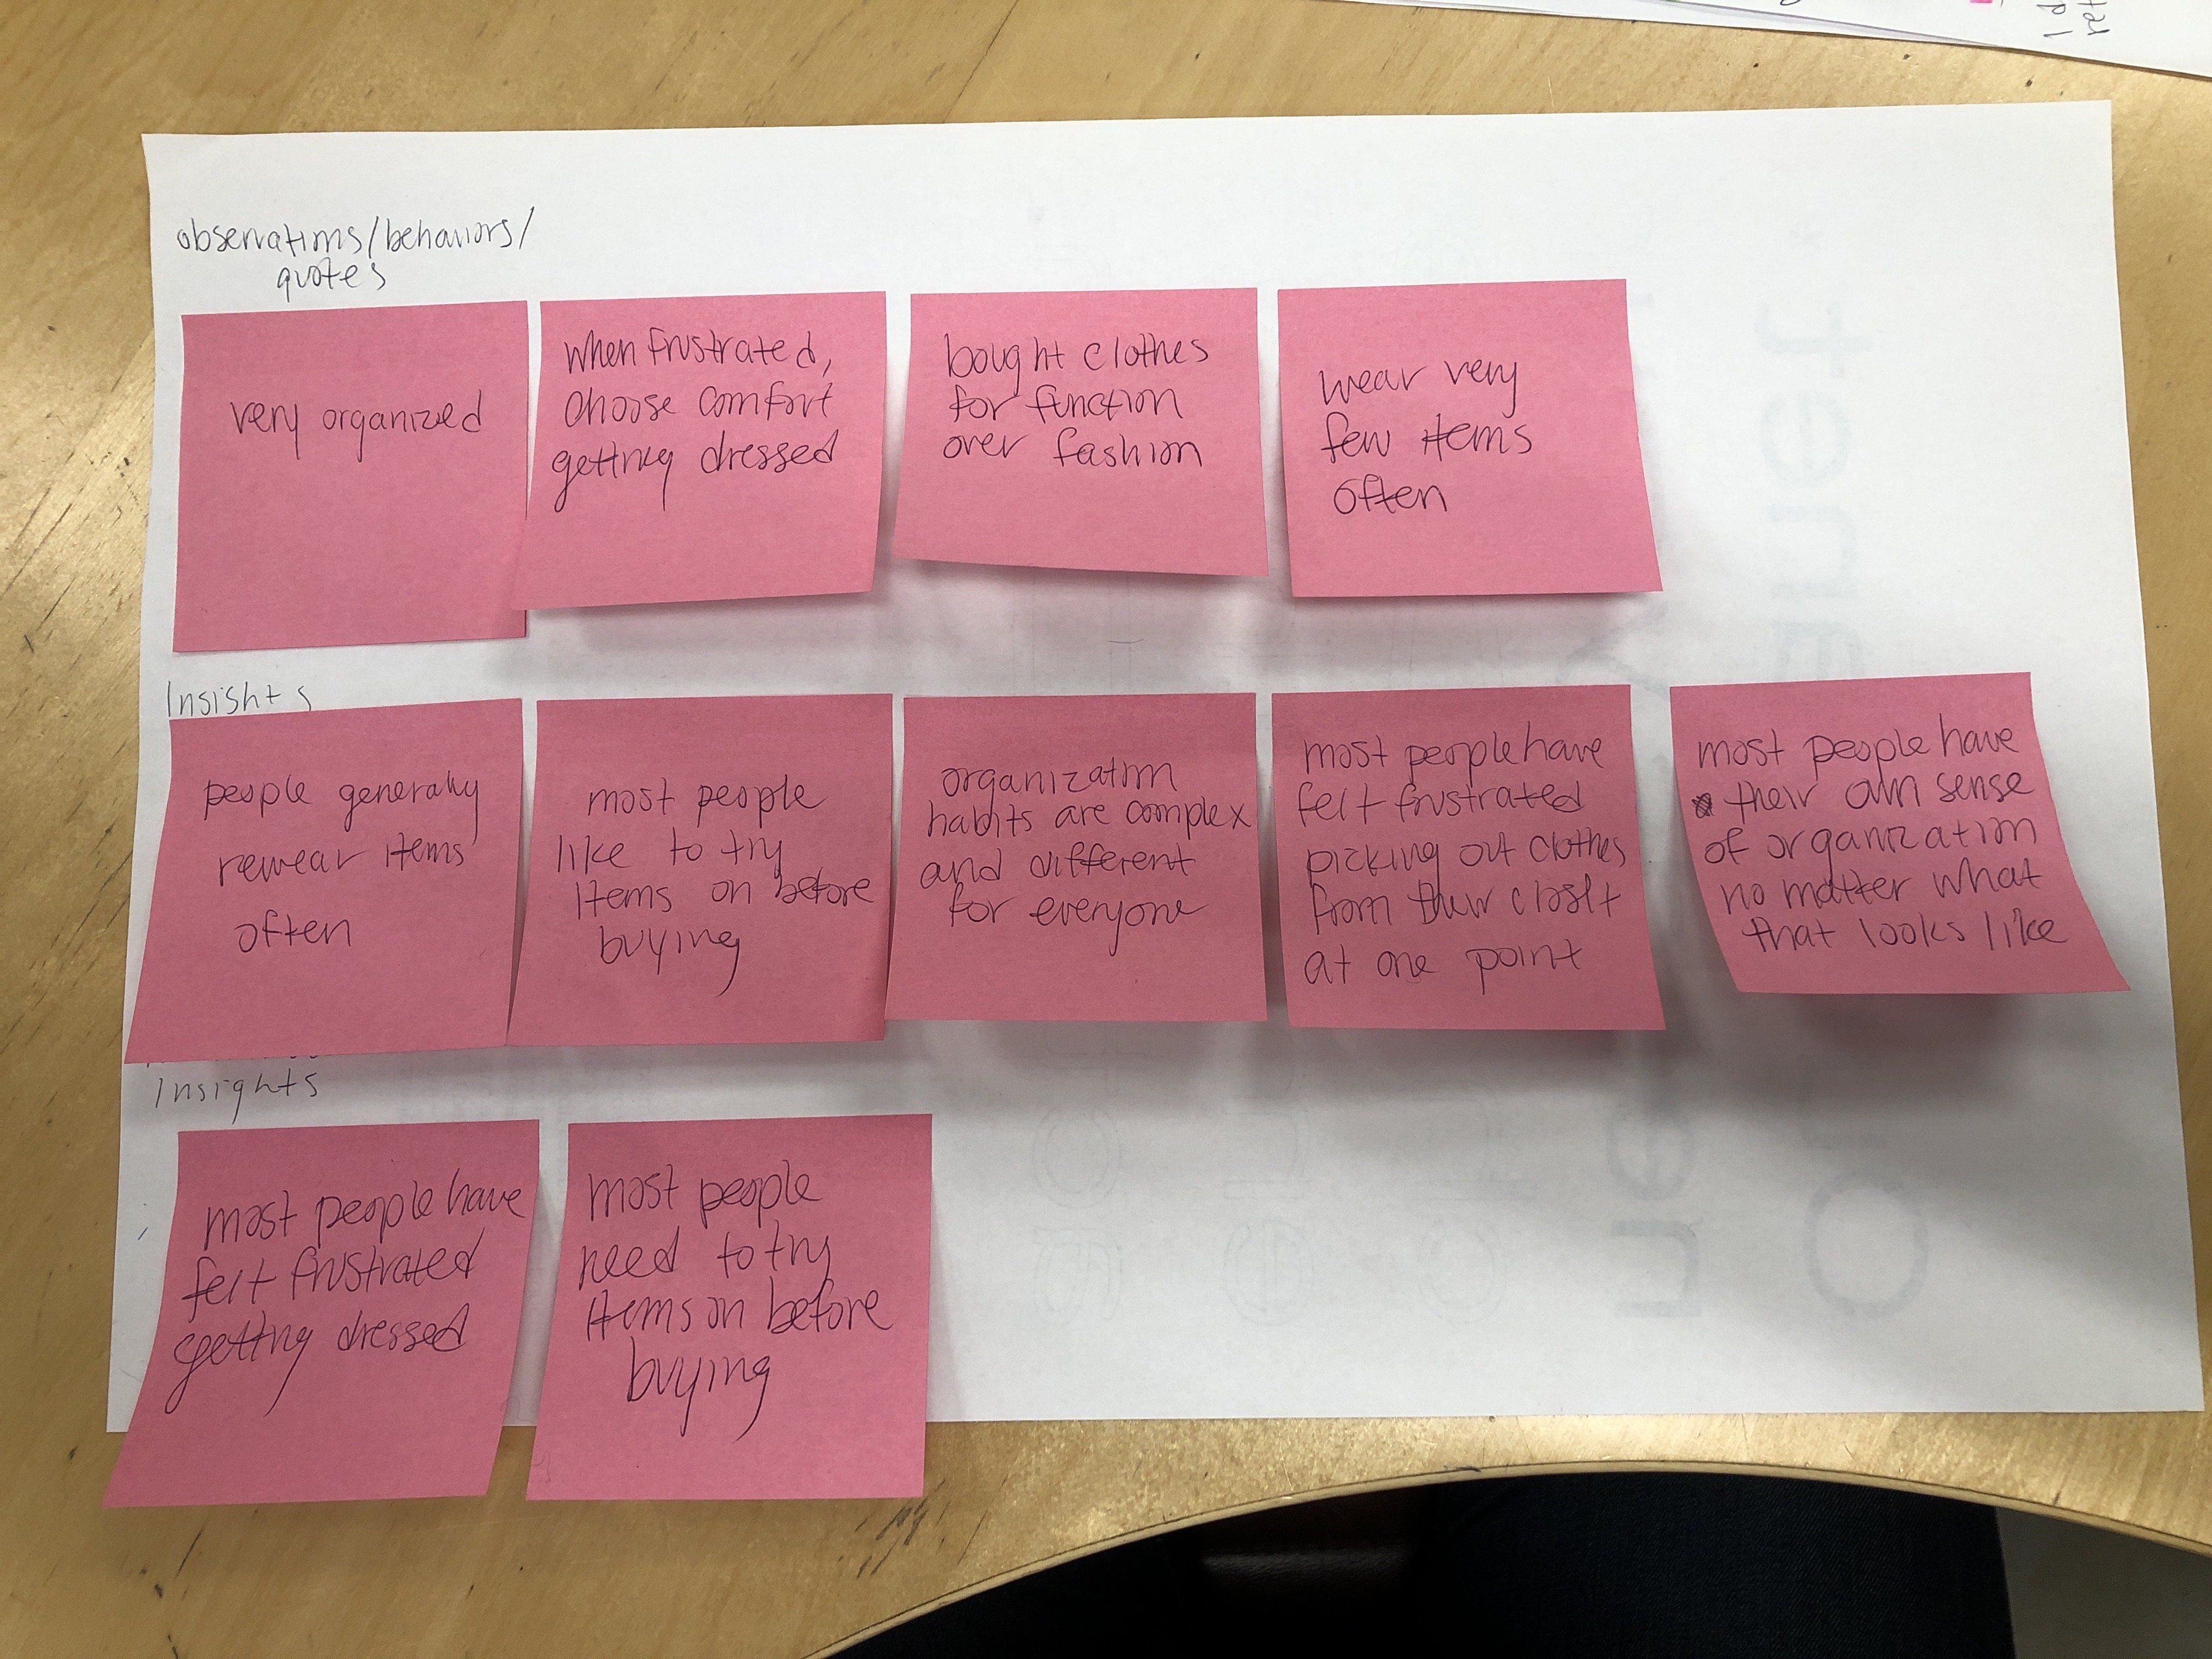 observations/behaviors/
quotes
very organized
when frustrated,
choose comfort
getting dressed
bought clothes
for function
over fashion
wear very
few items
often
Insights
people generally
rewear items
often
most people
like to try
items on before
buying
organization
habits are complex
and different
for everyone
most people have
felt frustrated
picking out clothes
from their closet
at one point
most people have
their own sense
of organization
no matter what
that looks like
Insights
most people have
felt frustrated
getting dressed
most people
need to try
items on before
buying